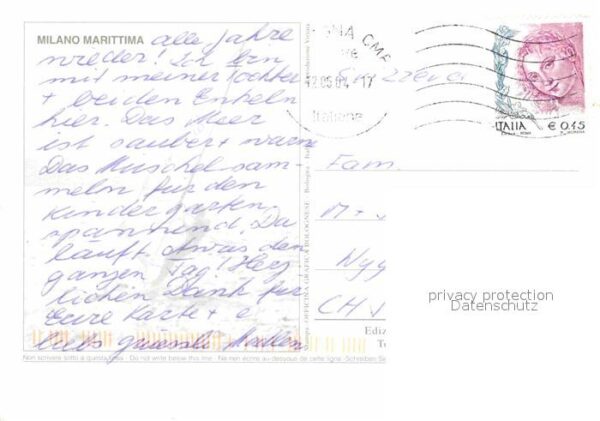 MILANO MARITTIMA alle Jahre
wieder! Ich bin
mit meiner Tochter
+ beiden Enkeln
hier. Das Meer
ist sauber + warm
Das Muschel sam-
meln für den
Kindergarten
spannend. Da
läuft etwas den
ganzen Tag! Herz
lichen Dank für
Eure Karte +
Non scrivere sotto a questa linea - Do not write below this line - Ne rien écrire au-dessous de cette ligne - Schreiben Sie
OFFICINA GRAFICA BOLOGNESE
GNA CMP
12.06.04 17
Italiane
Svizzera
ITALIA € 0,45
Fam.
M
Nyg
CH
Ediz
privacy protection
Datenschutz